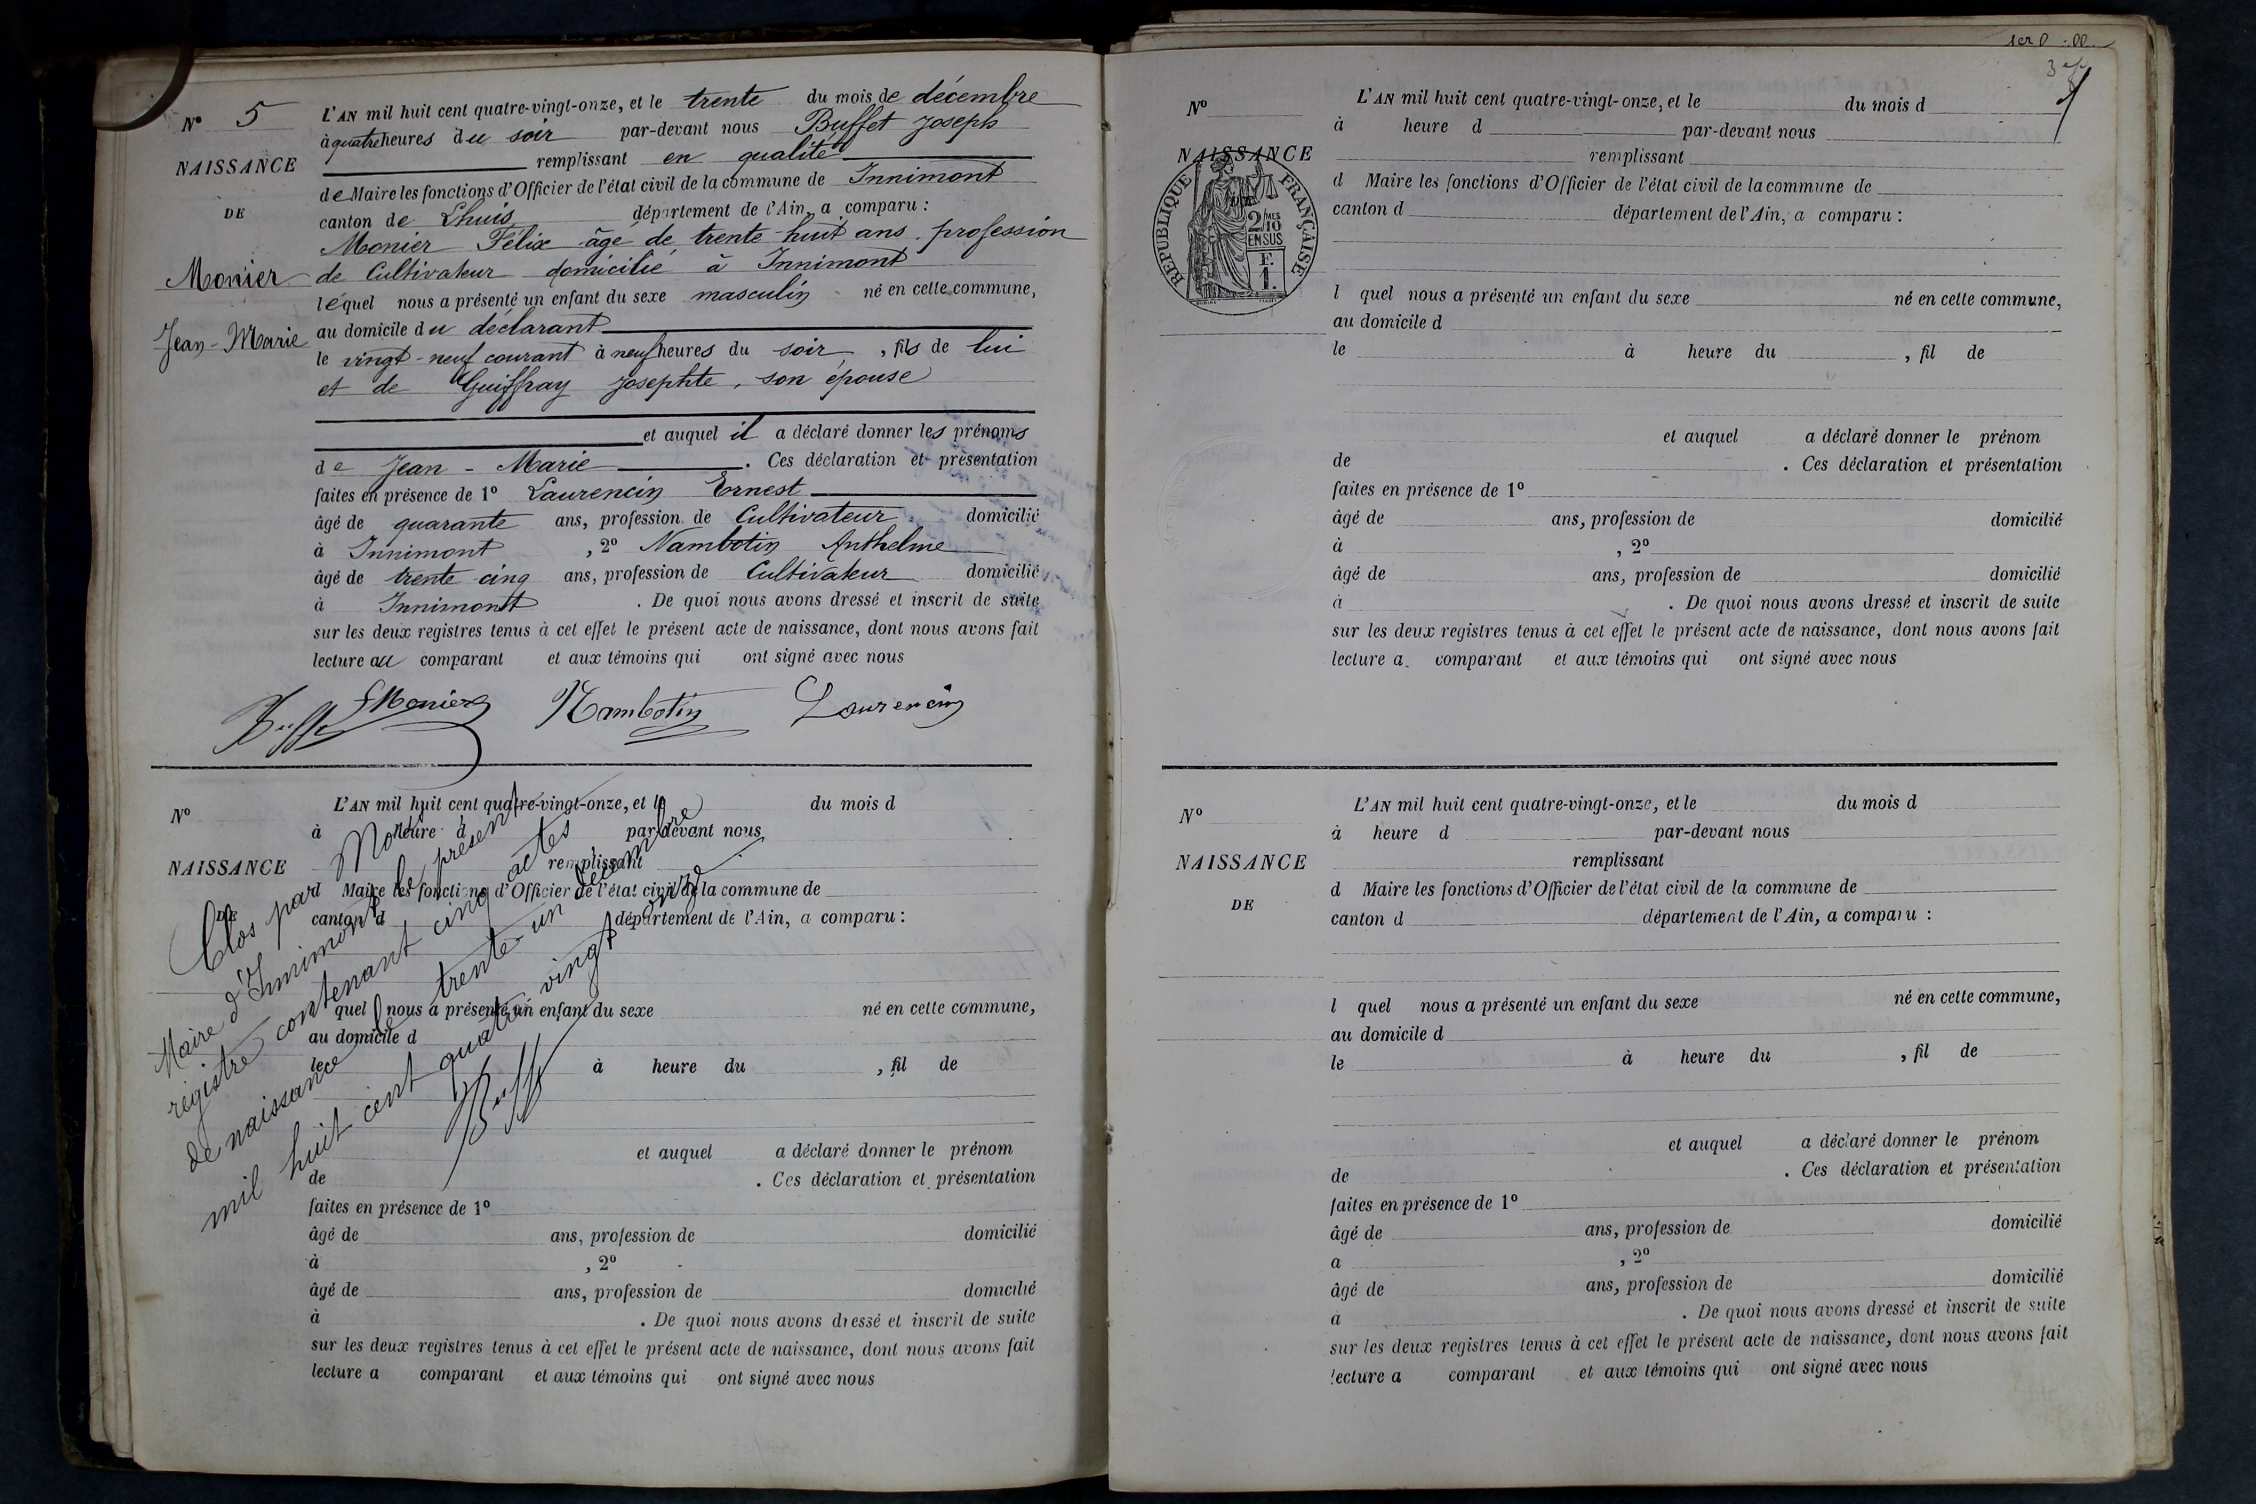 N° 5
NAISSANCE
DE
Monier
Jean-Marie
L'AN mil huit cent quatre-vingt-onze, et le trente du mois de décembre
à quatre heures du soir par-devant nous Buffet Joseph
remplissant en qualité
de Maire les fonctions d'Officier de l'état civil de la commune de Innimont
canton de Lhuis département de l'Ain, a comparu :
Monier Félix âgé de trente-huit ans, profession
de Cultivateur domicilié à Innimont
lequel nous a présenté un enfant du sexe masculin né en cette commune,
au domicile du déclarant
le vingt-neuf courant à neuf heures du soir, fils de lui
et de Guiffray Josephte, son épouse
et auquel il a déclaré donner les prénoms
de Jean-Marie . Ces déclaration et présentation
faites en présence de 1° Laurencin Ernest
âgé de quarante ans, profession de Cultivateur domicilié
à Innimont , 2° Nambotin Anthelme
âgé de trente cinq ans, profession de Cultivateur domicilié
à Innimont . De quoi nous avons dressé et inscrit de suite
sur les deux registres tenus à cet effet le présent acte de naissance, dont nous avons fait
lecture au comparant et aux témoins qui ont signé avec nous
Buffet FMonier Nambotin Laurencin
N°
NAISSANCE
DE
L'AN mil huit cent quatre-vingt-onze, et le du mois d
à heure d par-devant nous
remplissant
d Maire les fonctions d'Officier de l'état civil de la commune de
canton d département de l'Ain, a comparu :
l quel nous a présenté un enfant du sexe né en cette commune,
au domicile d
le à heure du , fil de
et auquel a déclaré donner le prénom
de . Ces déclaration et présentation
faites en présence de 1°
âgé de ans, profession de domicilié
à , 2°
âgé de ans, profession de domicilié
à . De quoi nous avons dressé et inscrit de suite
sur les deux registres tenus à cet effet le présent acte de naissance, dont nous avons fait
lecture a comparant et aux témoins qui ont signé avec nous
Clos par Nous
Maire d'Innimont le présent
registre contenant cinq actes
de naissance le trente-un décembre
mil huit cent quatre vingt onze
Buffet
N°
NAISSANCE
RÉPUBLIQUE FRANÇAISE
DE
2/10 MES
EN SUS
F.
1.
L'AN mil huit cent quatre-vingt-onze, et le du mois d
à heure d par-devant nous
remplissant
d Maire les fonctions d'Officier de l'état civil de la commune de
canton d département de l'Ain, a comparu :
l quel nous a présenté un enfant du sexe né en cette commune,
au domicile d
le à heure du , fil de
et auquel a déclaré donner le prénom
de . Ces déclaration et présentation
faites en présence de 1°
âgé de ans, profession de domicilié
à , 2°
âgé de ans, profession de domicilié
à . De quoi nous avons dressé et inscrit de suite
sur les deux registres tenus à cet effet le présent acte de naissance, dont nous avons fait
lecture a comparant et aux témoins qui ont signé avec nous
N°
NAISSANCE
DE
L'AN mil huit cent quatre-vingt-onze, et le du mois d
à heure d par-devant nous
remplissant
d Maire les fonctions d'Officier de l'état civil de la commune de
canton d département de l'Ain, a comparu :
l quel nous a présenté un enfant du sexe né en cette commune,
au domicile d
le à heure du , fil de
et auquel a déclaré donner le prénom
de . Ces déclaration et présentation
faites en présence de 1°
âgé de ans, profession de domicilié
à , 2°
âgé de ans, profession de domicilié
à . De quoi nous avons dressé et inscrit de suite
sur les deux registres tenus à cet effet le présent acte de naissance, dont nous avons fait
lecture a comparant et aux témoins qui ont signé avec nous